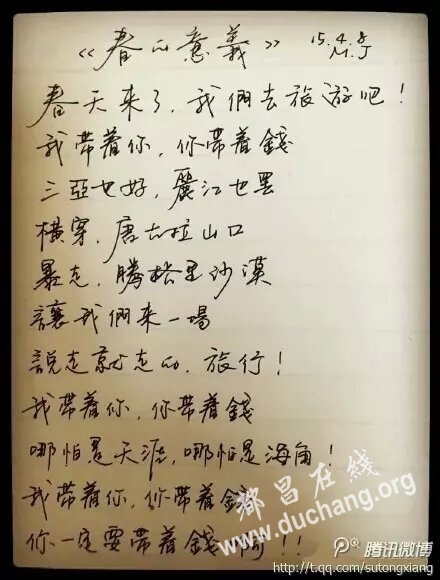 《春的意義》 15.4.8
M.J
春天来了，我們去旅游吧！
我带着你，你带着錢
三亞也好，麗江也罢
横穿，唐古拉山口
暴走，騰格里沙漠
讓我們来一場
説走就走的，旅行！
我带着你，你带着錢
哪怕是天涯，哪怕是海角！
我带着你，你带着錢
你一定要带着錢啊！！
都昌在线
www.duchang.org
腾讯微博
http://t.qq.com/sutongxiang